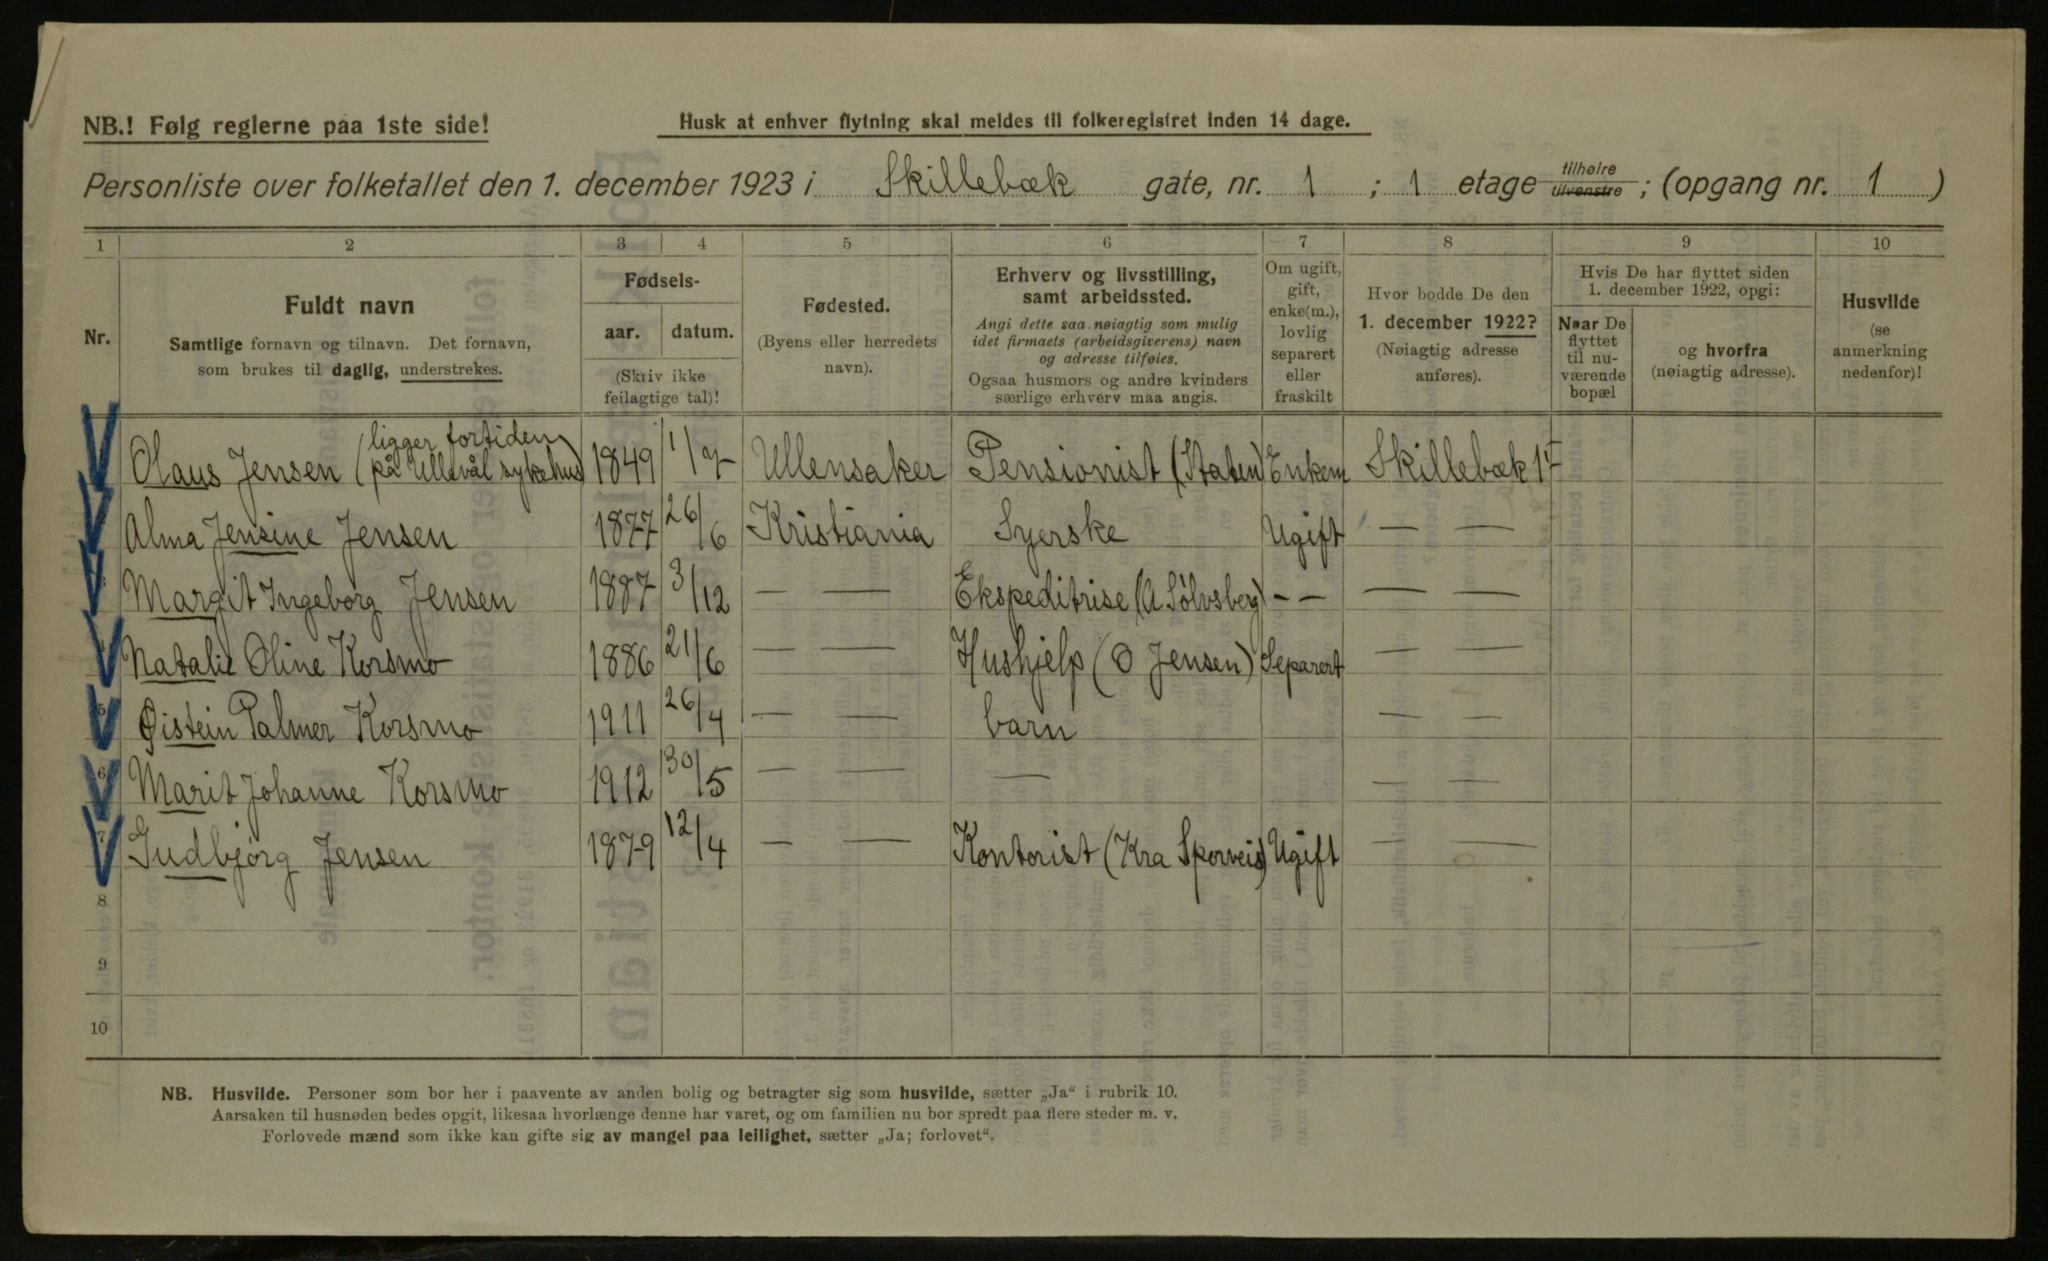 NB.! Følg reglerne paa 1ste side!
Husk at enhver flytning skal meldes til folkeregistret inden 14 dage.
Personliste over folketallet den 1. december 1923 i Skillebæk gate, nr. 1 ; 1 etage tilhøire tilvenstre ; (opgang nr. 1 )
1 2 3 4 5 6 7 8 9 10
Nr.
Fuldt navn
Samtlige fornavn og tilnavn. Det fornavn,
som brukes til daglig, understrekes.
Fødsels-
aar. datum.
(Skriv ikke
feilagtige tal)!
Fødested.
(Byens eller herredets
navn).
Erhverv og livsstilling,
samt arbeidssted.
Angi dette saa nøiagtig som mulig
idet firmaets (arbeidsgiverens) navn
og adresse tilføies.
Ogsaa husmors og andre kvinders
særlige erhverv maa angis.
Om ugift,
gift,
enke(m.),
lovlig
separert
eller
fraskilt
Hvor bodde De den
1. december 1922?
(Nøiagtig adresse
anføres).
Hvis De har flyttet siden
1. december 1922, opgi:
Naar De
flyttet
til nu-
værende
bopæl
og hvorfra
(nøiagtig adresse).
Husvilde
(se
anmerkning
nedenfor)!
Olaus Jensen (ligger fortiden
på Ullevål sykehus) 1849 1/7 Ullensaker Pensionist (Staten) Enkem Skillebæk 1 I
Alma Jensine Jensen 1877 26/6 Kristiania Syerske Ugift — —
3 Margit Ingeborg Jensen 1887 3/12 — — Ekspeditrise (A Sølvsberg) - - — —
Natalie Oline Korsmo 1886 21/6 — — Hushjelp (O Jensen) Separert — —
5 Øistein Palmer Korsmo 1911 26/4 — — barn — —
6 Marit Johanne Korsmo 1912 30/5 — — — — —
7 Gudbjørg Jensen 1879 12/4 — — Kontorist (Kra Sporveie) Ugift — —
8
9
10
NB. Husvilde. Personer som bor her i paavente av anden bolig og betragter sig som husvilde, sætter „Ja“ i rubrik 10.
Aarsaken til husnøden bedes opgit, likesaa hvorlænge denne har varet, og om familien nu bor spredt paa flere steder m. v.
Forlovede mænd som ikke kan gifte sig av mangel paa leilighet, sætter „Ja; forlovet“.